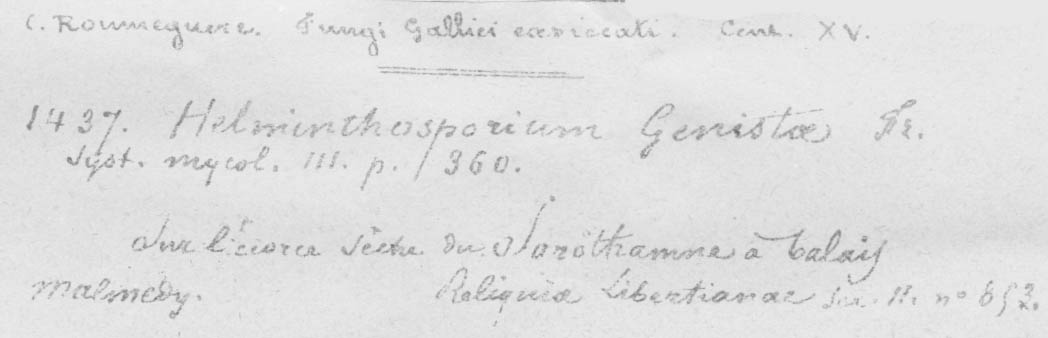 C. Roumeguere. Fungi Gallici exsiccati. Cent. XV.
1437. Helminthosporium Genistæ Fr.
Syst. mycol. III. p. 360.
Sur l'écorce sèche du Sarothamne à balais
Malmedy. Reliquiæ Libertianae Ser. II. no 652.